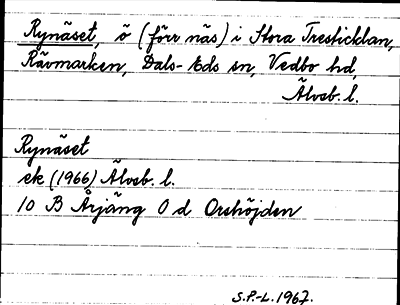 Rynäset, ö (förr näs) i Stora Tresticklan,
Rävmarken, Dals-Eds sn, Vedbo hd,
Älvsb. l.
Rynäset
ek (1966) Älvsb. l.
10 B Årjäng 0 d Orshöjden
S.P.-L. 1967.